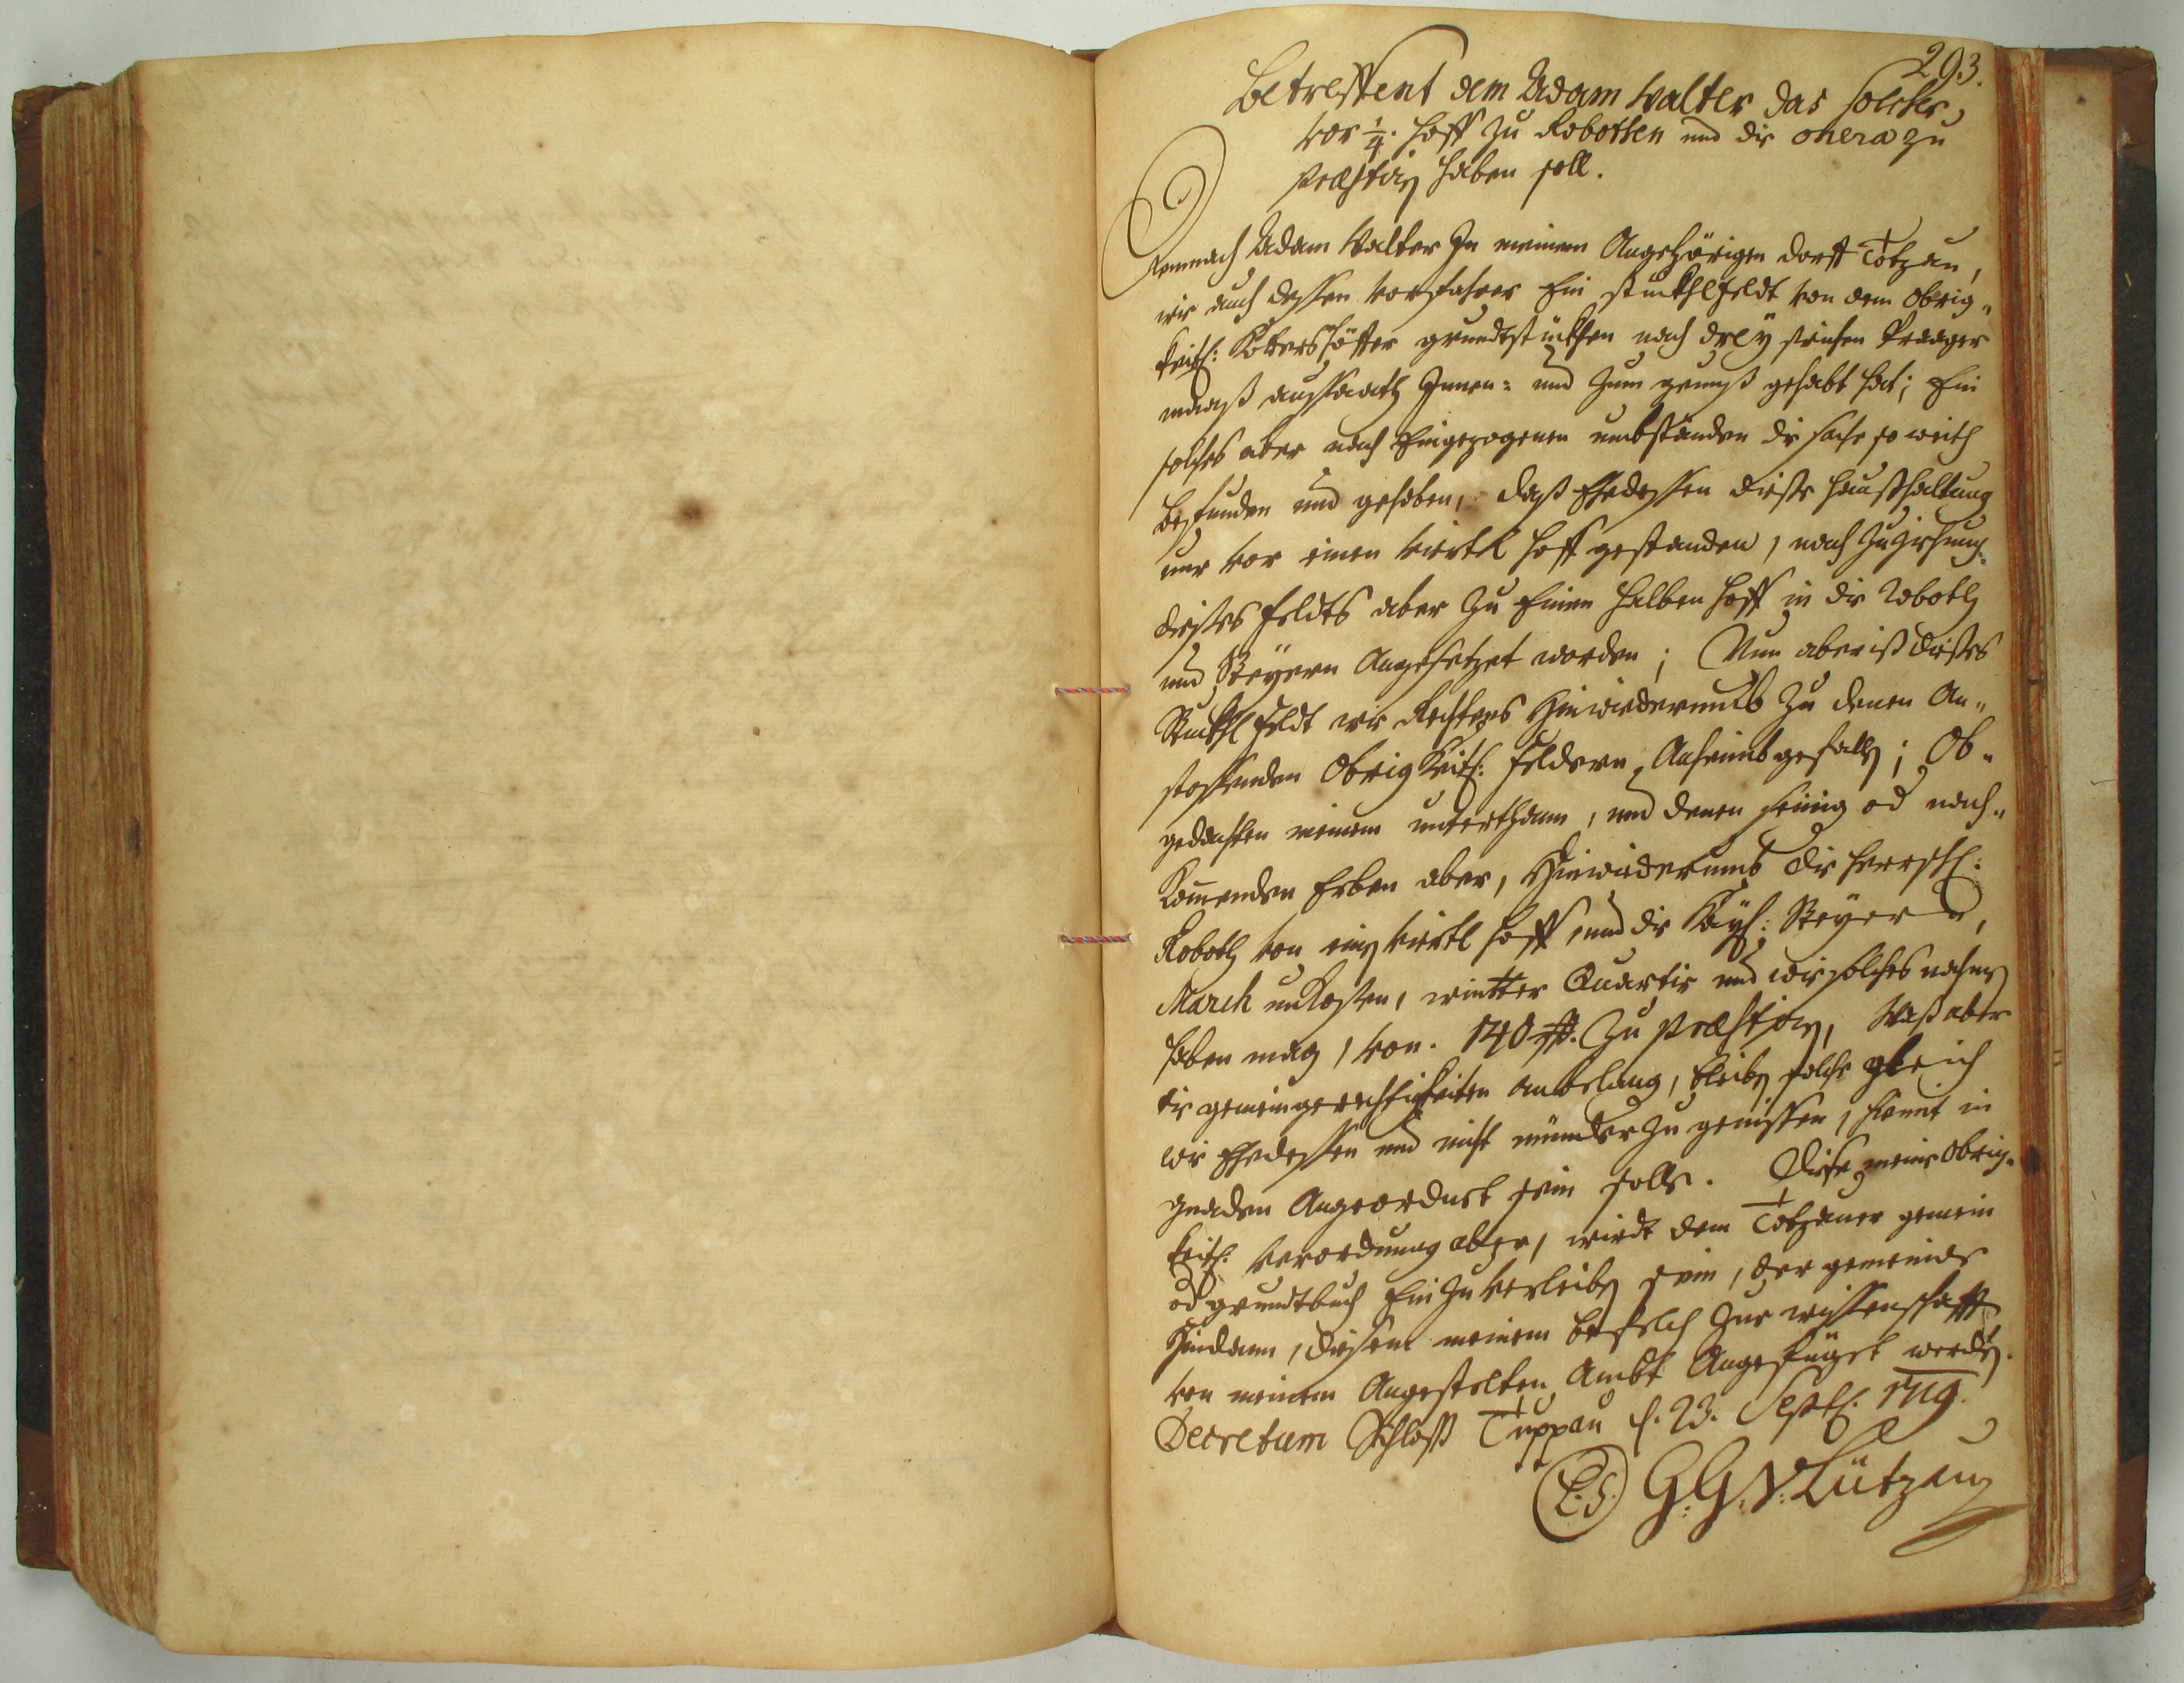 293.
Betreffent dem Adam Walter das solcher
vor 1/4. Hoff zu Robothen und die onera zu
præstirn haben soll.
Demnach Adam Walter In meinem Angehörigen dorff Totzau,
wie auch dessen vorfahrer Ein stuckhl feldt von dem obrig-
keitl: höffer grundtstückhen nach dreÿ strichen Praager
maaß aussaath Innen= und zum genuß gehabt hat; Ein
solches aber nach Eingezogenen umbständen die sache so weith
befunden und gehoben, daß Ehedessen diese haußhaltung
nur vor einen viertl hoff gestanden, nach Zuziehung
dieses feldts aber zu Einen halben hoff in die Roboth
und Steÿern Angesetzet worden; Nun aber ist dieses
Stuckhl feldt wie Rechtens hinwiderumb zu denen An-
stossenden Obrigkeitl: feldern Anheimb gefalln; Ob-
gedachten meinem unterthann, und denen seinig od nach-
komenden Erben aber, hinwiderumb die herrschl:
Roboth von ein viertl hoff und die Kaÿl: Steÿern,
March unkosten, wintter Quartir und wie solches nahmen
haben mag, von. 140 ß. zu præstirn, Waß aber
die gemeingerechtigkeiten anbelang, bleiben solche gleich
wie Ehedessen und nicht münder zu genissen, hiemit in
gnaden Angeordnet sein solle. Diese meine obrig-
keitl. verordnung aber, wirdt dem Totzauer gemein
od grundtbuch Ein zu verleiben sein, der gemeinde
hindann, diesem meinem befelch zur wissenschafft
von meinem Angestelten Ambt Angefüget werden.
Decretum Schloß Tuppau d. 23. Septb. 1719.
L.S. G: G: V: Lützau